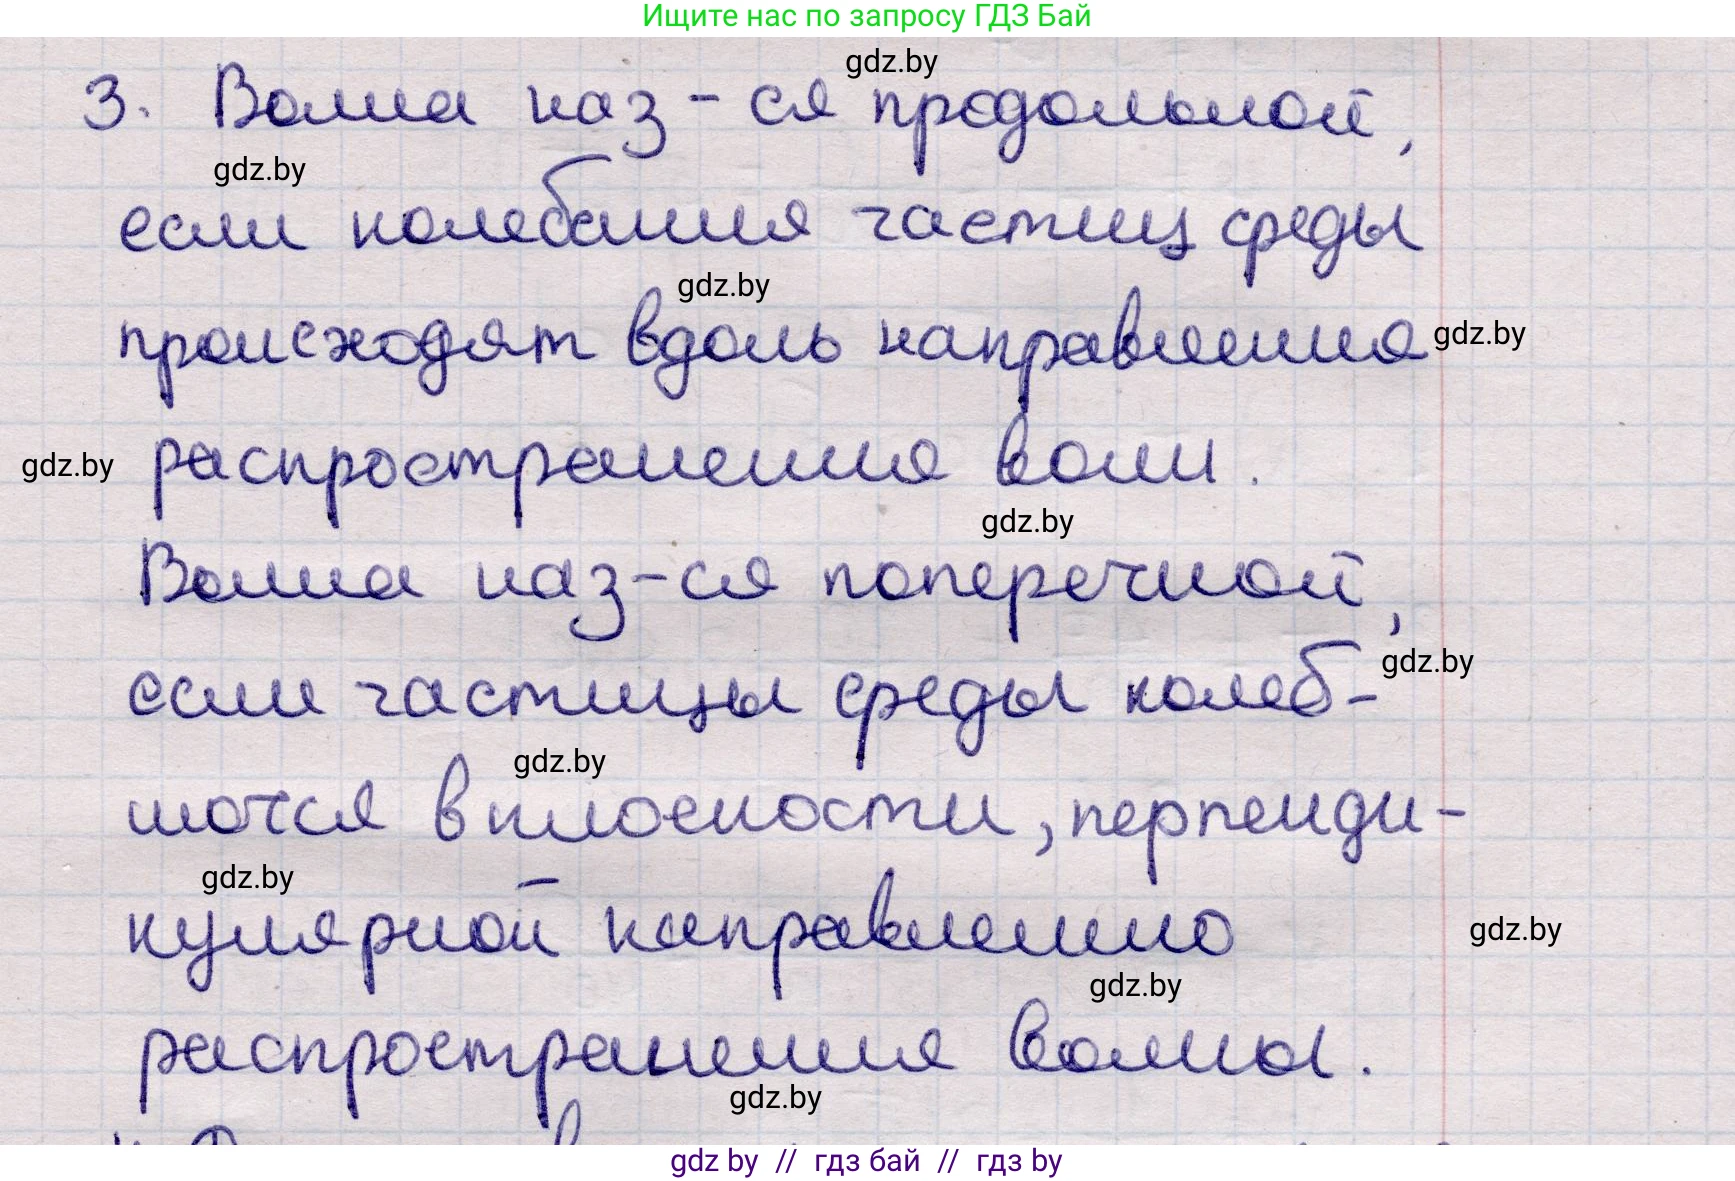 Ищите нас по запросу ГДЗ Бай
gdz.by
3. Волна наз-ся продольной,
gdz.by
если колебания частиц среды
gdz.by
происходят вдоль направления
gdz.by
gdz.by
распространения волн.
gdz.by
Волна наз-ся поперечной,
gdz.by
если частицы среды колеб-
gdz.by
лются в плоскости, перпенди-
gdz.by
кулярной направлению
gdz.by
gdz.by
распространения волны.
gdz.by
gdz by // гдз бай // гдз by